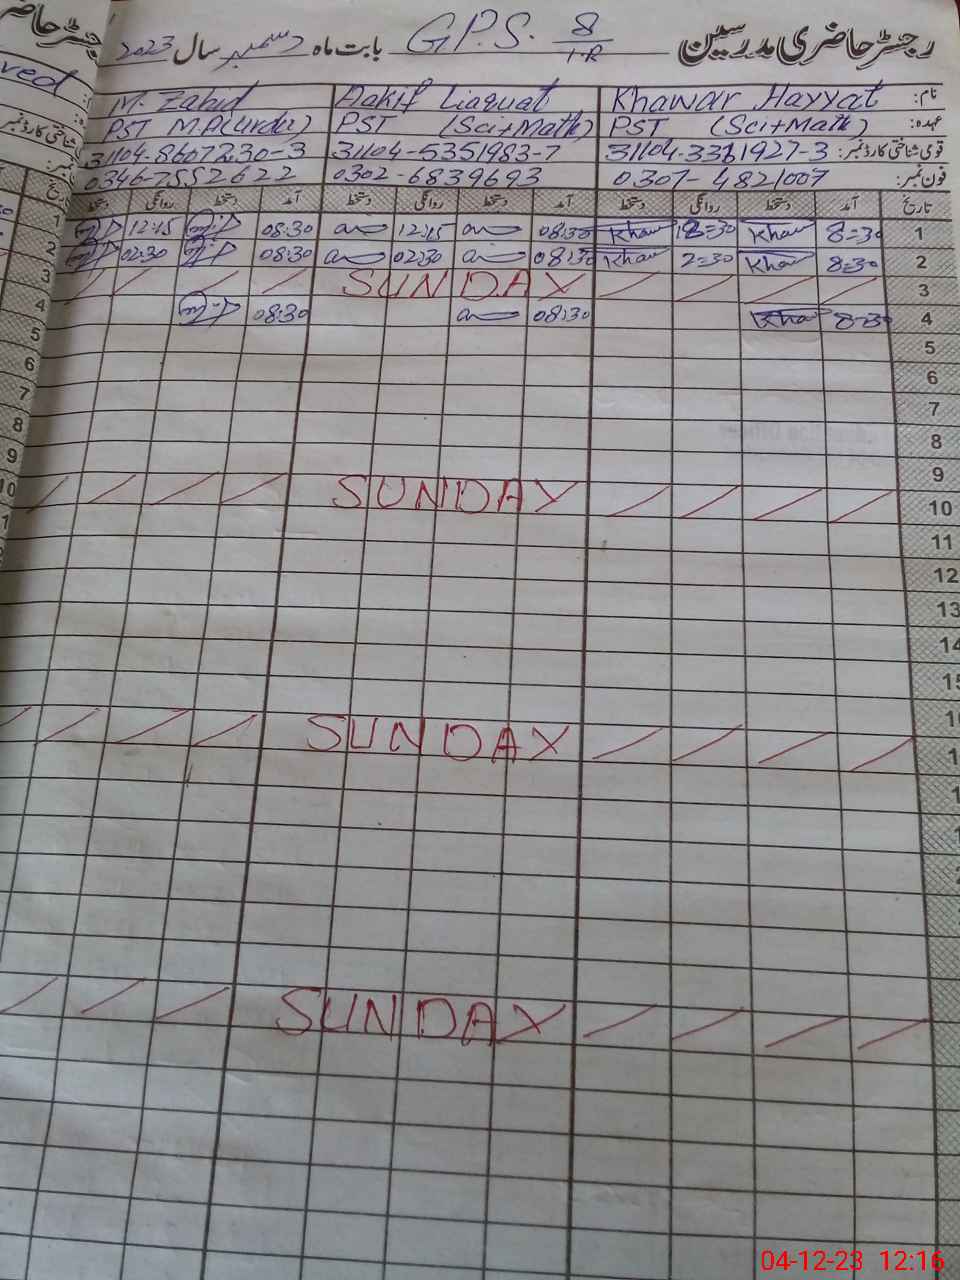 رجسٹر حاضری مدرسین G.P.S. 8/1-R بابت ماہ دسمبر سال 2023
نام: Khawar Hayyat Aakif Liaquat M. Zahid
عہدہ: PST (Sci+Math) PST (Sci+Math) PST M.A(Urdu)
قومی شناختی کارڈ نمبر: 31104-3361927-3 31104-5351983-7 31104-8607230-3
فون نمبر: 0307-4821007 0302-6839693 0346-7552622
تاریخ آمد دستخط روانگی دستخط آمد دستخط روانگی دستخط آمد دستخط روانگی دستخط تاریخ
1 8=30 Khawar 12=30 Khawar 08:30 12:15 08:30 12:15 1
2 8=30 Khawar 2=30 Khawar 08:30 02:30 08:30 02:30 2
3 SUNDAY 3
4 8=30 Khawar 08:30 08:30 4
5 5
6 6
7 7
8 8
9 9
10 SUNDAY 10
11
12
13
14
15
SUNDAY
SUNDAY
04-12-23 12:16